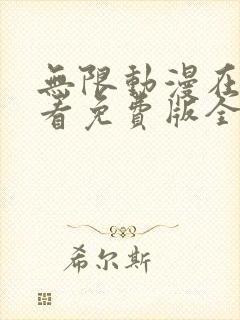 無限動漫在
看免費版全
希尔斯